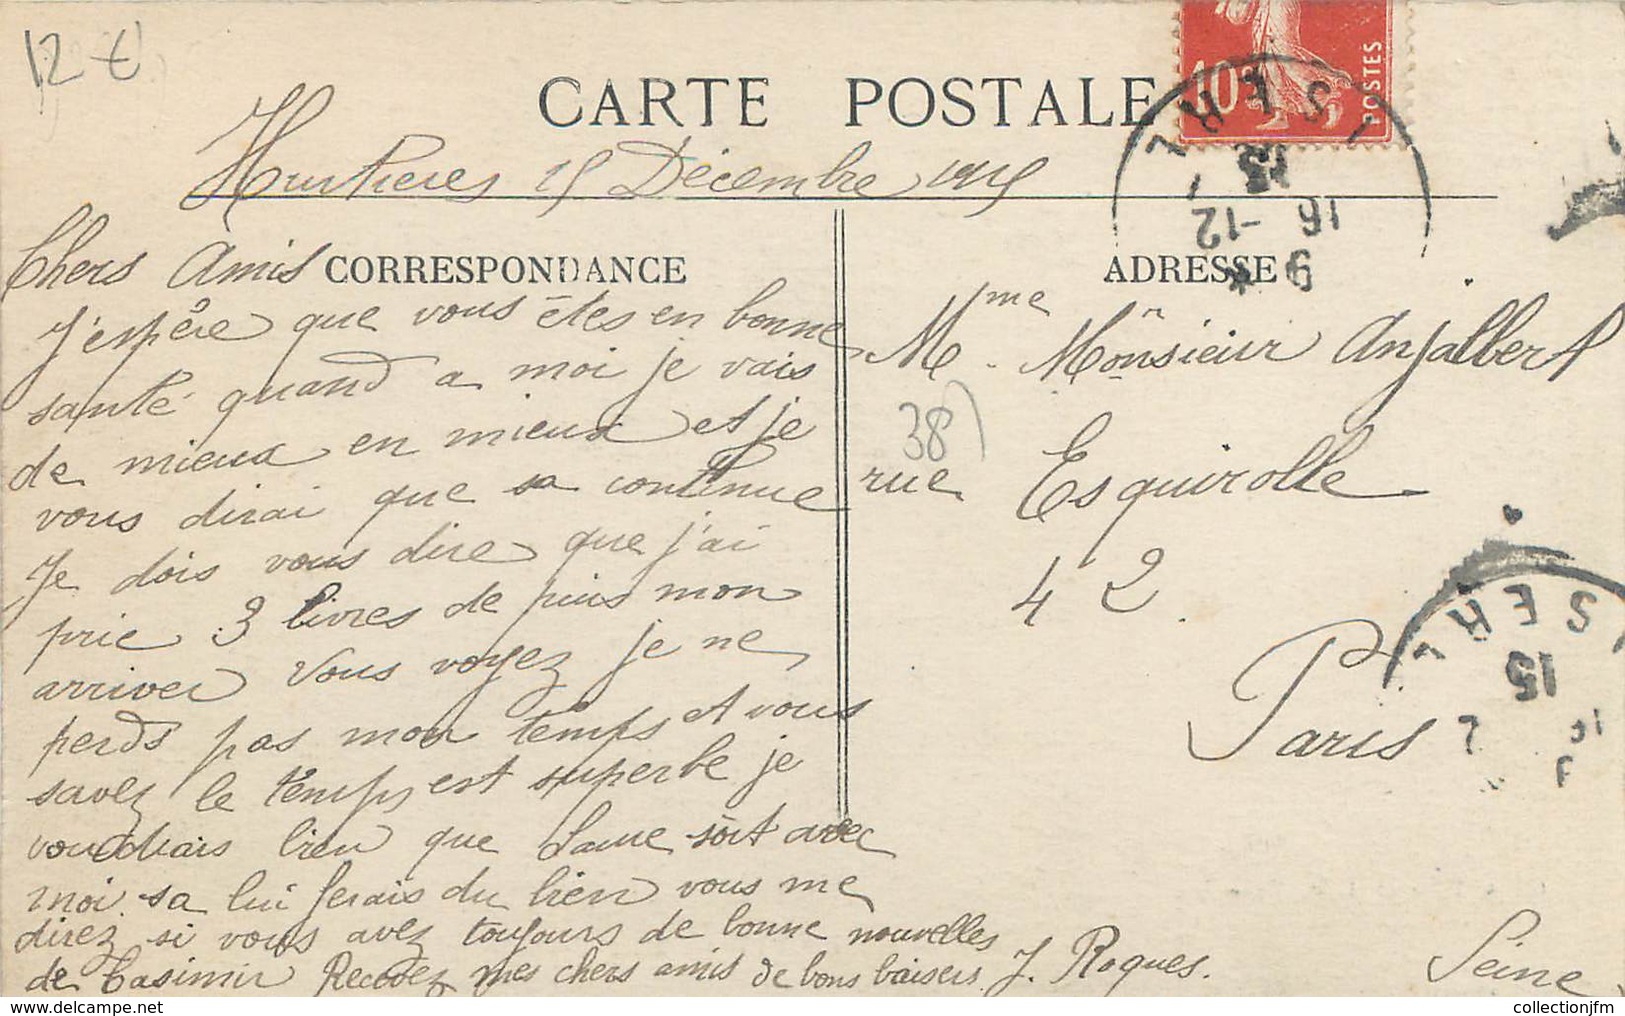 12 €
CARTE POSTALE
10
POSTES
15 Décembre 1915
ISER
15
16 -12
9 *
Chers Amis
CORRESPONDANCE
ADRESSE
J'espère que vous êtes en bonne
santé quand a moi je vais
de mieux en mieux et je
vous dirai que sa continue
Je dois vous dire que j'ai
prie 3 livres de puis mon
arriver Vous voyez je ne
perds pas mon temps et vous
savez le temps est superbe je
voudrais bien que soit avec
moi sa lui ferais du bien vous me
direz si vous avez toujours de bonne nouvelles
de Casimir Recevez mes chers amis de bons baisers J. Roques.
Mme Mönsieur Anjalbert
38
rue Esquirolle
42
Paris
Seine
ISER
15
collectionjfm